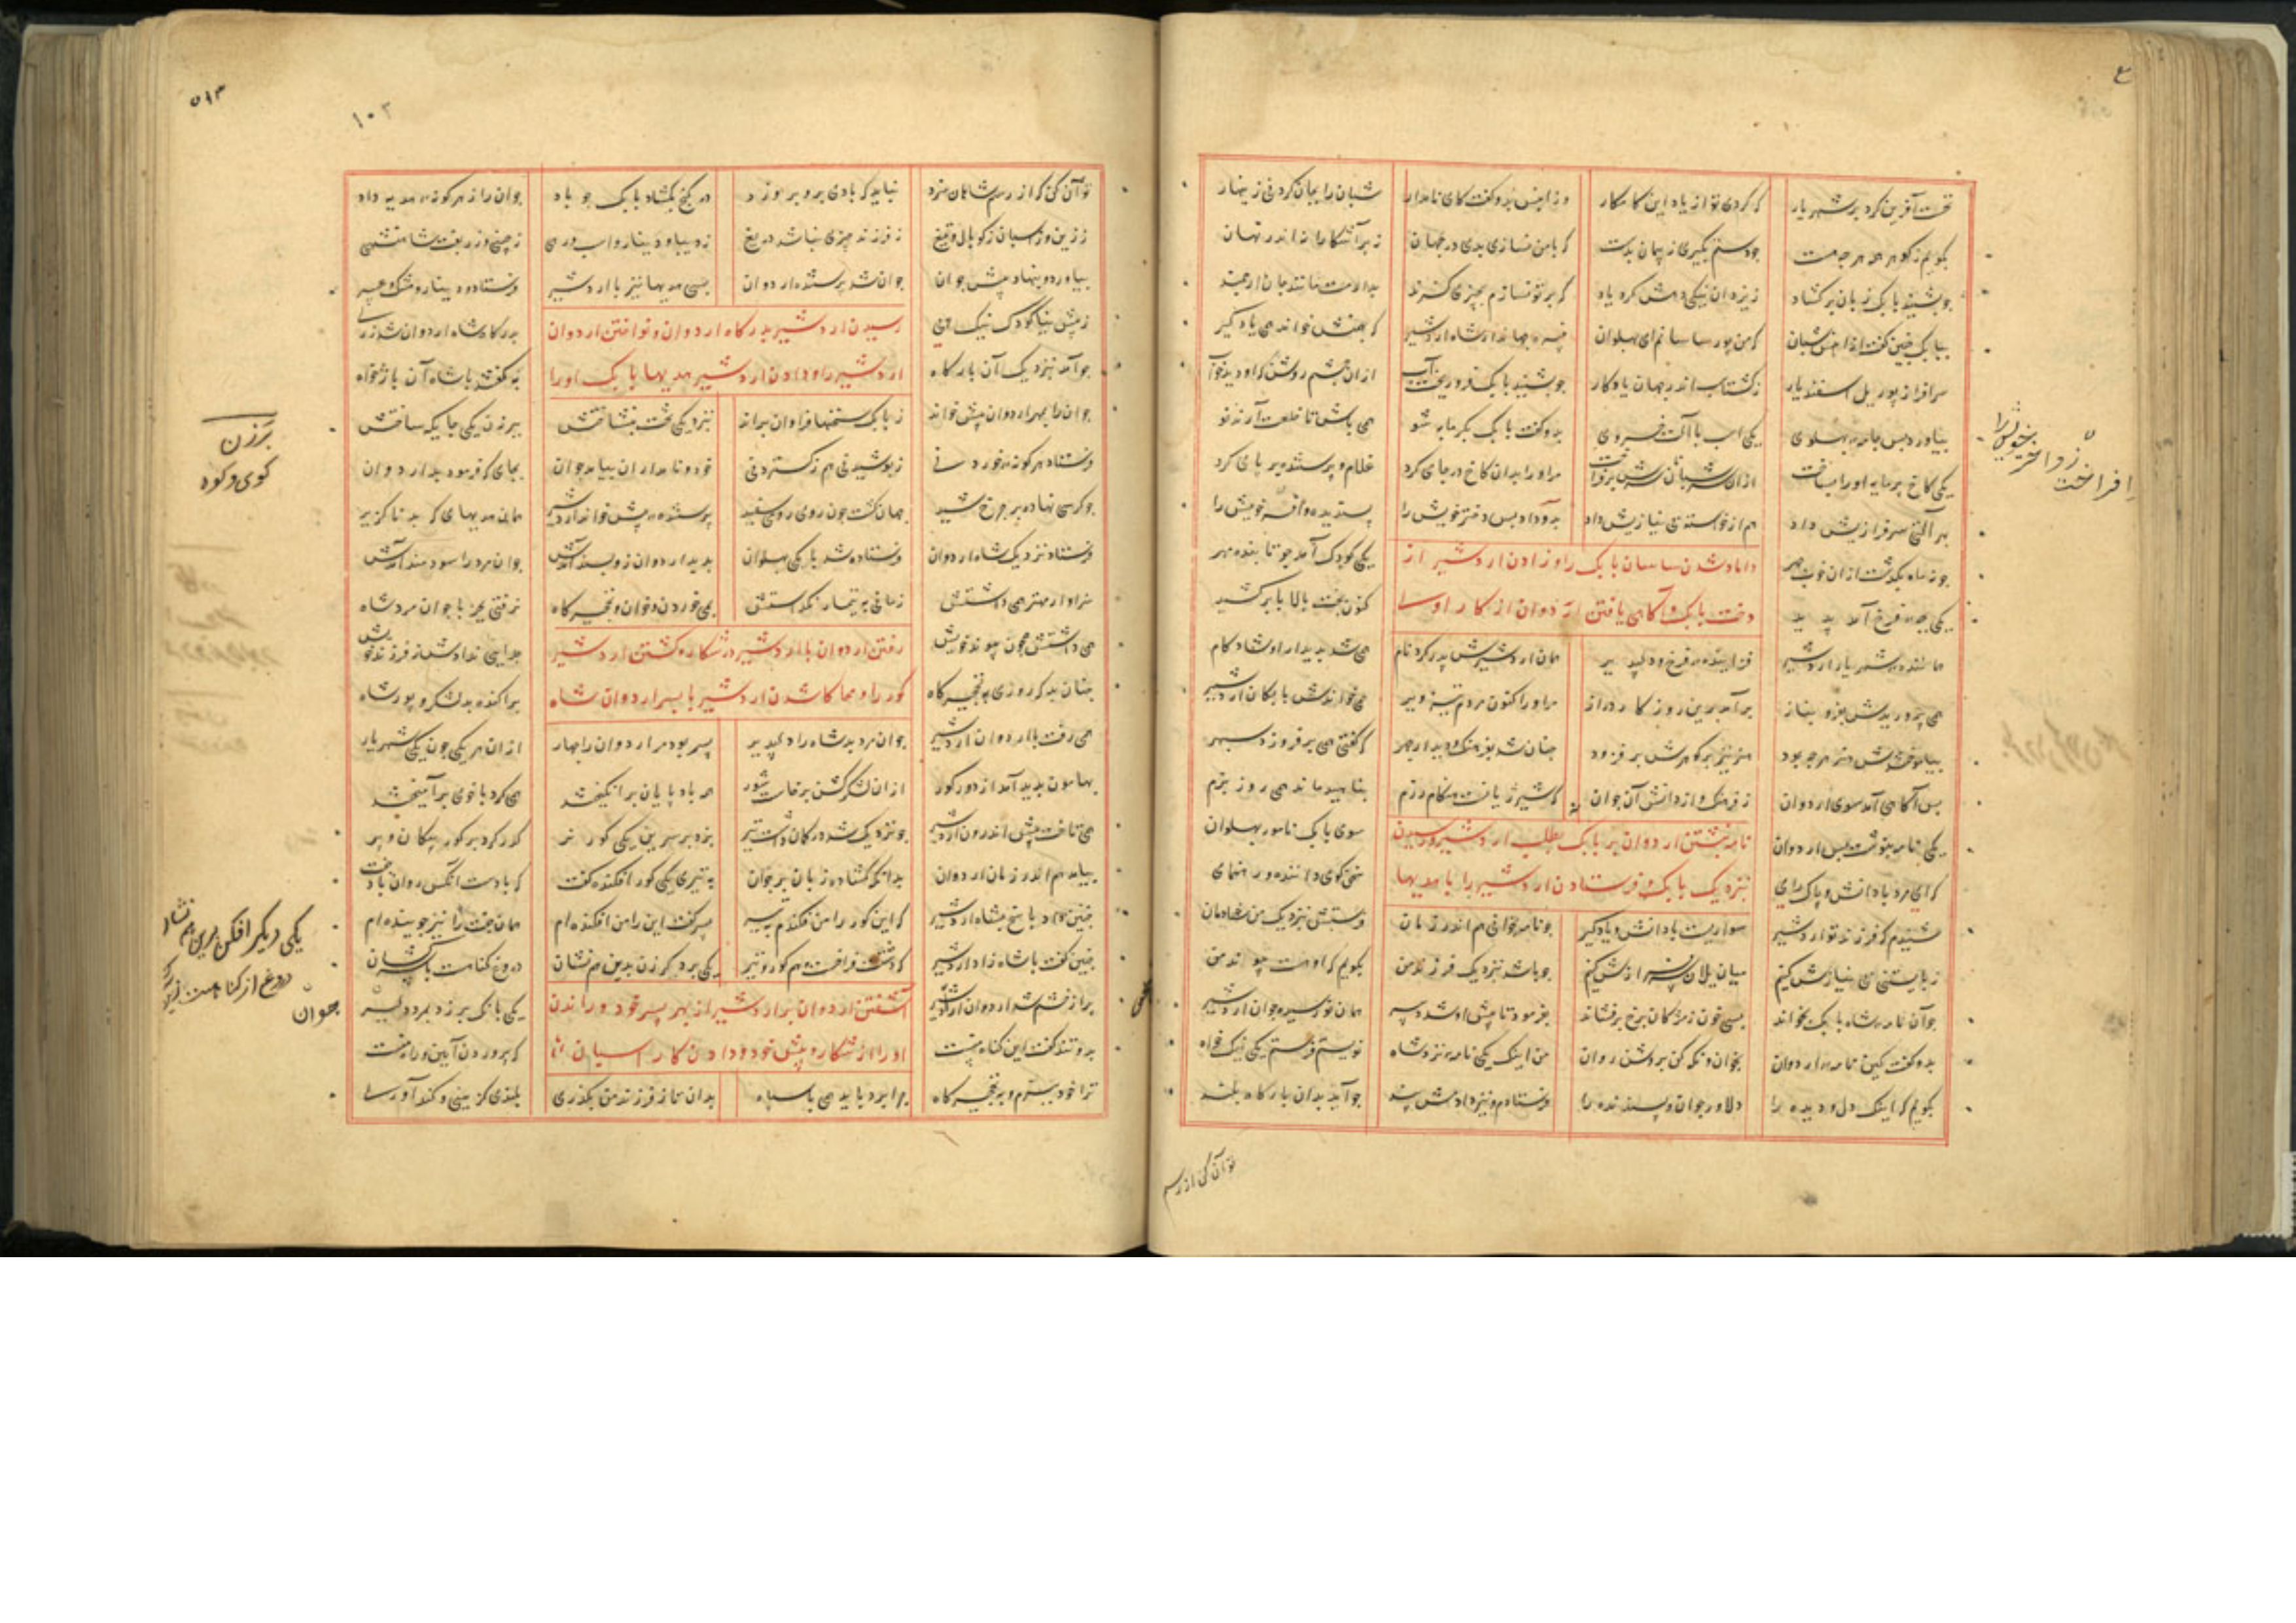 نخست آفرین کرد بر شهریار که کردی تو از یاد این کامکار وزان پس بدو گفت کای نامدار شبان را بجان گر دهی زینهار
بگویم زگوهر همه هرچه هست چو دستم بگیری بپیمان بدست که بامن نسازی بدی در جهان نه بر آشکارا نه اندر نهان
چو بشنید بابک زبان برگشاد ز یزدان نیکی دهش کرد یاد که بر تو نسازم بچیزی گزند بدارمت مانند جان ارجمند
ببابک چنین گفت ازان پس شبان که من پور ساسانم ای پهلوان نبیره جهاندار شاه اردشیر که بهمنش خواندی یادگیر
سرافراز پور یل اسفندیار ز گشتاسب اندر جهان یادگار چو بشنید بابک فرو ریخت آب ازان چشم روشن که او دید خواب
بیاورد پس جامه پهلوی یکی اسب با آلت خسروی بدو گفت بابک بگرمابه شو همی باش تا خلعت آرند نو
یکی کاخ پرمایه او را بساخت ازان سرشبانان سرش برفراخت مر او را بدان کاخ در جای کرد غلام و پرستنده بر پای کرد
بهر آلتی سرفرازیش داد هم از خواسته بی نیازیش داد بدو داد پس دختر خویش را پسندیده و افسر خویش را
چو نه ماه بگذشت ازان خوب چهر یکی کودک آمد چو تابنده مهر
داماد شدن ساسان بابک را و زادن اردشیر از
دخت بابک و آگاهی یافتن اردوان از کار او
همان اردشیرش پدر کرد نام همی شد بدیدار او شادکام
همی پروریدش ببر بر بناز برآمد برین روزگار دراز مر او را کنون مردم تیزویر همی خواندش بابکان اردشیر
بیاموختندش هنر هرچه بود هنر نیز بر گوهرش برفزود چنان شد بفرهنگ و دیدار و چهر که گفتی همی برفروزد سپهر
پس آگاهی آمد سوی اردوان ز فرهنگ و از دانش آن جوان که شیر ژیانست هنگام رزم بناهید ماند همی روز بزم
یکی نامه بنوشت پس اردوان سوی بابک نامور پهلوان
نامه نبشتن اردوان بر بابک بطلب اردشیر و رسیدن
نزدیک بابک و فرستادن اردشیر را با هدیها
که ای مرد با دانش و پاک رای سخن گوی داننده و رهنمای
شنیدم که فرزند تو اردشیر سواریست با دانش و یادگیر چو نامه بخوانی هم اندر زمان فرستش بنزدیک من شادمان
ز بایستنی بی نیازش کنم میان یلان سرفرازش کنم چو باشد بنزدیک فرزند من بگویم که او هست پیوند من
چو آن نامه شاه بابک بخواند بسی خون ز مژگان برخ برفشاند بفرمود تا پیش او شد دبیر همان نورسیده جوان اردشیر
بدو گفت کین نامه اردوان بخوان و نگه کن بروشن روان من اینک یکی نامه نزد شاه نویسم فرستم یکی نیک خواه
بگویم که اینک دل و دیده را دلاور جوان پسندیده را فرستادم و نیز دادمش پند چو آید بدان بارگاه بلند
تو آن کن که از رسم
افراخت
تو آن کن که از رسم شاهان سزد نباید که بادی برو بر وزد در گنج بگشاد بابک چو باد جوان را ز هرگونه هدیه داد
ز زین و ز اسپان ز کوپال و تیغ ز فرزند چیزی نباشد دریغ ز دیبا و دینار و اسب و رهی ز چینی و زربفت شاهنشهی
بیاورد و بنهاد پیش جوان جوان شد پرستنده اردوان بسی هدیها نیز با اردشیر فرستاد و دینار و مشک و عبیر
ز پیش نیا کودک نیک پی بدرگاه شاه اردوان شد ز ری
رسیدن اردشیر بدرگاه اردوان و نواختن اردوان
اردشیر را و دادن اردشیر هدیها بابک او را
چو آمد بنزدیک آن بارگاه بگفتند با شاه آن بارخواه
جوان را بمهر اردوان پیش خواند ز بابک سخنها فراوان براند بنزدیکی تخت بنشاختش ببرزن یکی جایگه ساختش
فرستاد هرگونه خوردنی ز پوشیدنی هم ز گستردنی خود و نامداران بیامد جوان بجای که فرمود بد اردوان
چو کرسی نهاد بر چرخ شید جهان گشت چون روی رومی سفید پرستنده پیش خواند اردشیر همان هدیهای که بد ناگزیر
فرستاد نزدیک شاه اردوان فرستاده شد بابکی پهلوان بدید اردوان زو پسند آمدش جوان مرد را سودمند آمدش
سزاوار مهتر همی داشتش زمانی به تیمار نگذاشتش بمی خوردن و خوان و نخچیرگاه نرفتی بجز با جوان مرد شاه
همی داشتش همچو پیوند خویش جدایی ندادش ز فرزند خویش
رفتن اردوان با اردشیر در شکار و کشتن اردشیر
گور را و محاکا شدن اردشیر با پسر اردوان شاه
چنان بد که روزی به نخچیرگاه پراکنده بد لشکر و پور شاه
همی رفت با اردوان اردشیر جوان مرد بد شاه را دلپذیر پسر بود مر اردوان را چهار ازان هر یکی چون یکی شهریار
بهامون پدید آمد از دور گور ازان لشکر گشن برخاست شور همه بادپایان برانگیختند همی گرد با خوی برآمیختند
همی تاخت پیش اندرون اردشیر چو نزدیک شد در کمان راند تیر بزد بر سرین یکی گور نر گذر کرد بر گور پیکان و پر
بیامد هم اندر زمان اردوان بدانگه گشاده زبان بر جوان به تیری یکی گور افکنده گفت که با دست آنکس روان باد جفت
چنین داد پاسخ بشاه اردشیر که این گور را من فکندم به تیر پسر گفت این را من افکنده ام همان جفت را نیز جوینده ام
چنین گفت با شاهزاد اردشیر که دشتست فراخست و هم گور و تیر یکی دیگر زن بدین هم نشان دروغ گناهست با سرکشان
پر از خشم شد اردوان ز اردشیر یکی بانگ بر زد بمرد دلیر
آشفتن اردوان بر اردشیر از بهر پسر خود و راندن
او را از شکار و پیش خود و دادن کار اسپان
بدو تند گفت این گناه منست که پروردن آیین و راه منست
ترا خود ببزم و به نخچیرگاه چرا برد باید همی با سپاه بدان تا ز فرزند من بگذری بلندی گزینی و کندآوری
برزن
کوی و کوه
یکی دیگر افکن برین هم نشان
دروغ از گناهست
جوان
۱۰۳
۵۱۳